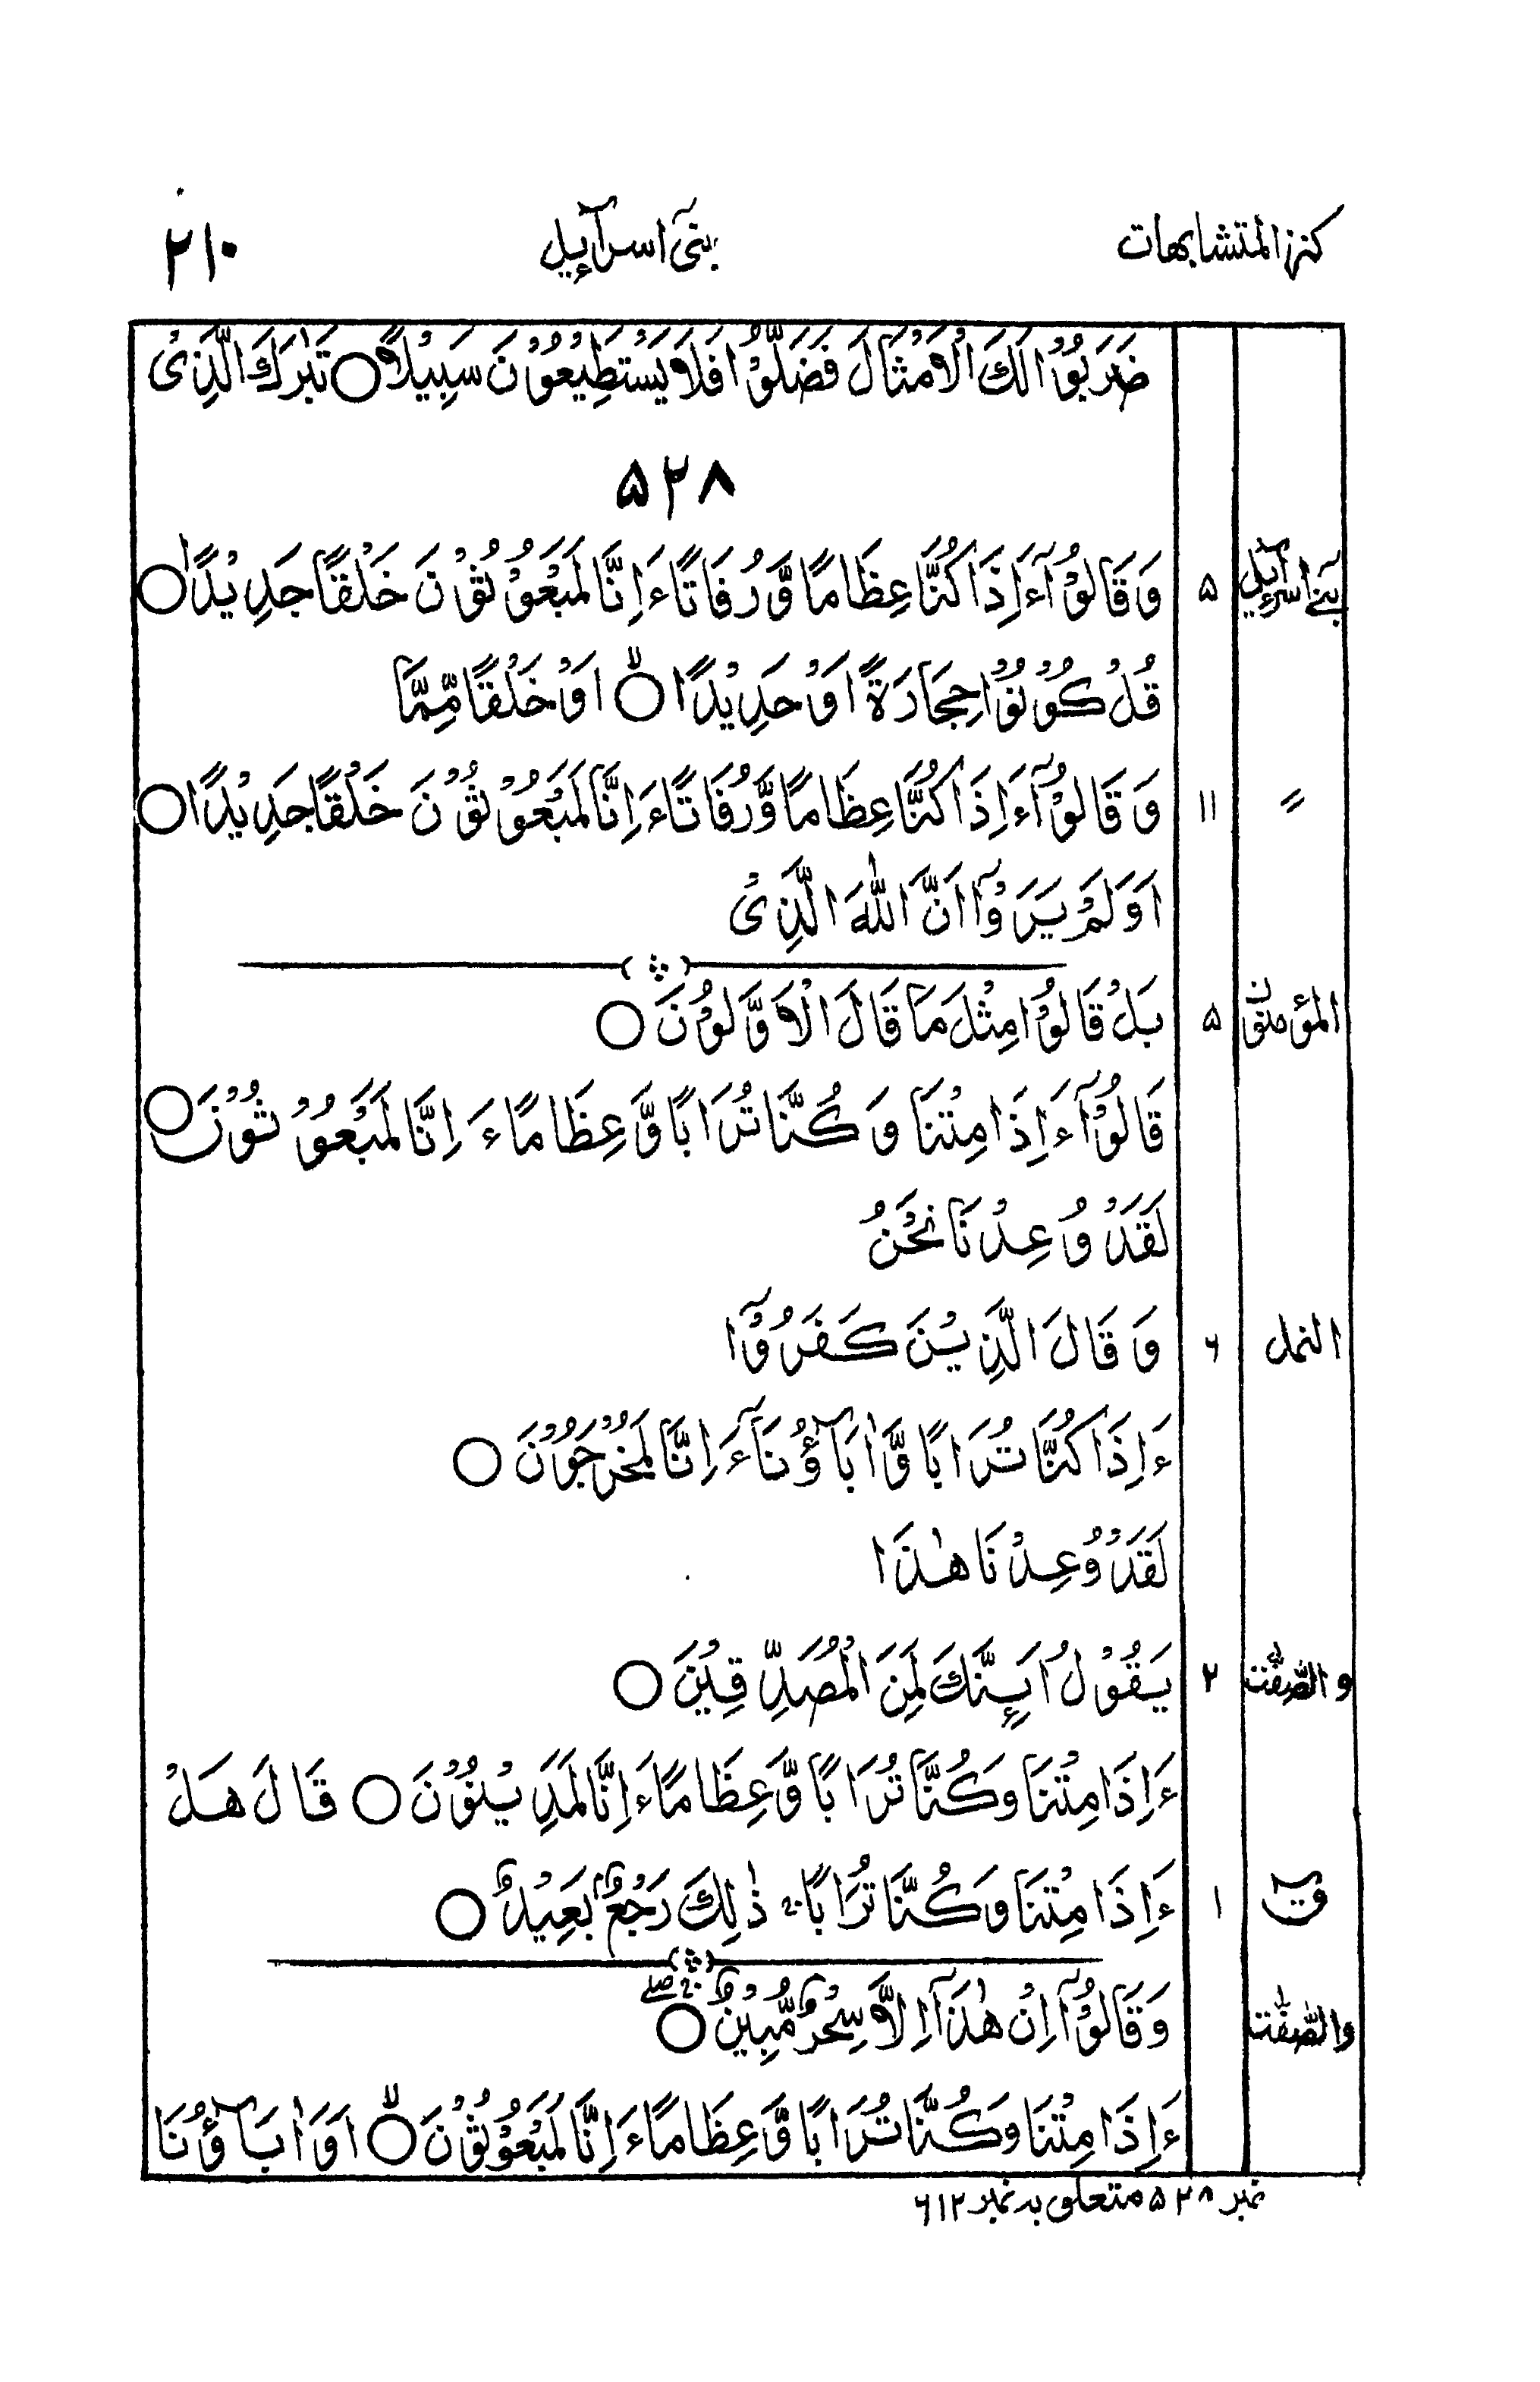 كنز المتشابهات بنی اسرآءیل ۲۱۰
ضَرَبُوْا لَكَ الْاَمْثَالَ فَضَلُّوْا فَلَا يَسْتَطِيْعُوْنَ سَبِيْلًا ○ تَبٰرَكَ الَّذِىْ
۵۲۸
بنے اسرآءیل ۵ وَقَالُوْٓا ءَاِذَا كُنَّا عِظَامًا وَّ رُفَاتًا ءَاِنَّا لَمَبْعُوْثُوْنَ خَلْقًا جَدِيْدًا ○
قُلْ كُوْنُوْا حِجَارَةً اَوْ حَدِيْدًا ○ۙ اَوْ خَلْقًا مِّمَّا
〃 ۱۱ وَقَالُوْٓا ءَاِذَا كُنَّا عِظَامًا وَّرُفَاتًا ءَاِنَّا لَمَبْعُوْثُوْنَ خَلْقًا جَدِيْدًا ○
اَوَلَمْ يَرَوْا اَنَّ اللّٰهَ الَّذِىْ
المؤمنون ۵ بَلْ قَالُوْا مِثْلَ مَا قَالَ الْاَوَّلُوْنَ ○
قَالُوْٓا ءَاِذَا مِتْنَا وَكُنَّا تُرَابًا وَّعِظَامًا ءَاِنَّا لَمَبْعُوْثُوْنَ ○
لَقَدْ وُعِدْنَا نَحْنُ
النمل ۶ وَقَالَ الَّذِيْنَ كَفَرُوْٓا
ءَاِذَا كُنَّا تُرَابًا وَّاٰبَآؤُنَآ ءَاِنَّا لَمُخْرَجُوْنَ ○
لَقَدْ وُعِدْنَا هٰذَا
والصّٰفّٰت ۲ يَقُوْلُ اَئِنَّكَ لَمِنَ الْمُصَدِّقِيْنَ ○
ءَاِذَا مِتْنَا وَكُنَّا تُرَابًا وَّعِظَامًا ءَاِنَّا لَمَدِيْنُوْنَ ○ قَالَ هَلْ
قٓ ۱ ءَاِذَا مِتْنَا وَكُنَّا تُرَابًا ۚ ذٰلِكَ رَجْعٌۢ بَعِيْدٌ ○
والصّٰفّٰت وَقَالُوْٓا اِنْ هٰذَآ اِلَّا سِحْرٌ مُّبِيْنٌ ○ۚۖ
ءَاِذَا مِتْنَا وَكُنَّا تُرَابًا وَّعِظَامًا ءَاِنَّا لَمَبْعُوْثُوْنَ ○ۙ اَوَاٰبَآؤُنَا
نمبر ۵۲۸ متعلق بہ نمبر ۶۱۲